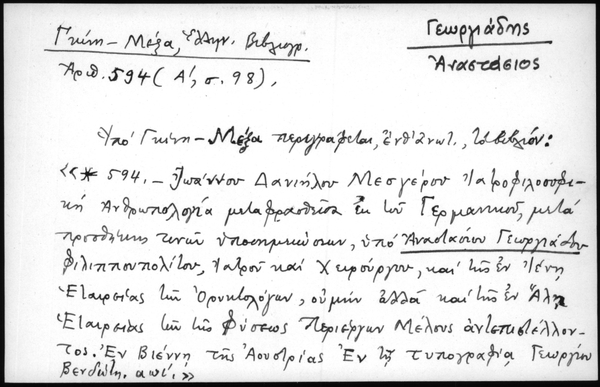 Γκίνη – Μέξα, Ἑλλην. Βιβλιογρ.
Γεωργιάδης
Ἀριθ. 594 (Α΄, σ. 98),
Ἀναστάσιος
Ὑπό Γκίνη – Μέξα περιγράφεται, ἔνθ' ἀνωτ., τό βιβλίον:
«* 594. – Ἰωάννου Δανιήλου Μεσγέρου Ἰατροφιλοσοφι-
κή Ἀνθρωπολογία μεταφρασθεῖσα ἐκ τοῦ Γερμανικοῦ, μετά
προσθήκης τινῶν ὑποσημειώσεων, ὑπό Ἀναστασίου Γεωργιάδου
Φιλιππουπολίτου, Ἰατροῦ καί Χειρούργου, καί τῆς ἐν Ἰένῃ
Ἑταιρείας τῶν Ὀρυκτολόγων, οὐ μήν ἀλλά καί τῆς ἐν Ἅλῃ
Ἑταιρείας τῶν τῆς Φύσεως Περιέργων Μέλους ἀντεπιστέλλον-
τος. Ἐν Βιέννῃ τῆς Ἀουστρίας Ἐν τῇ τυπογραφίᾳ Γεωργίου
Βενδώτη. αωί. »